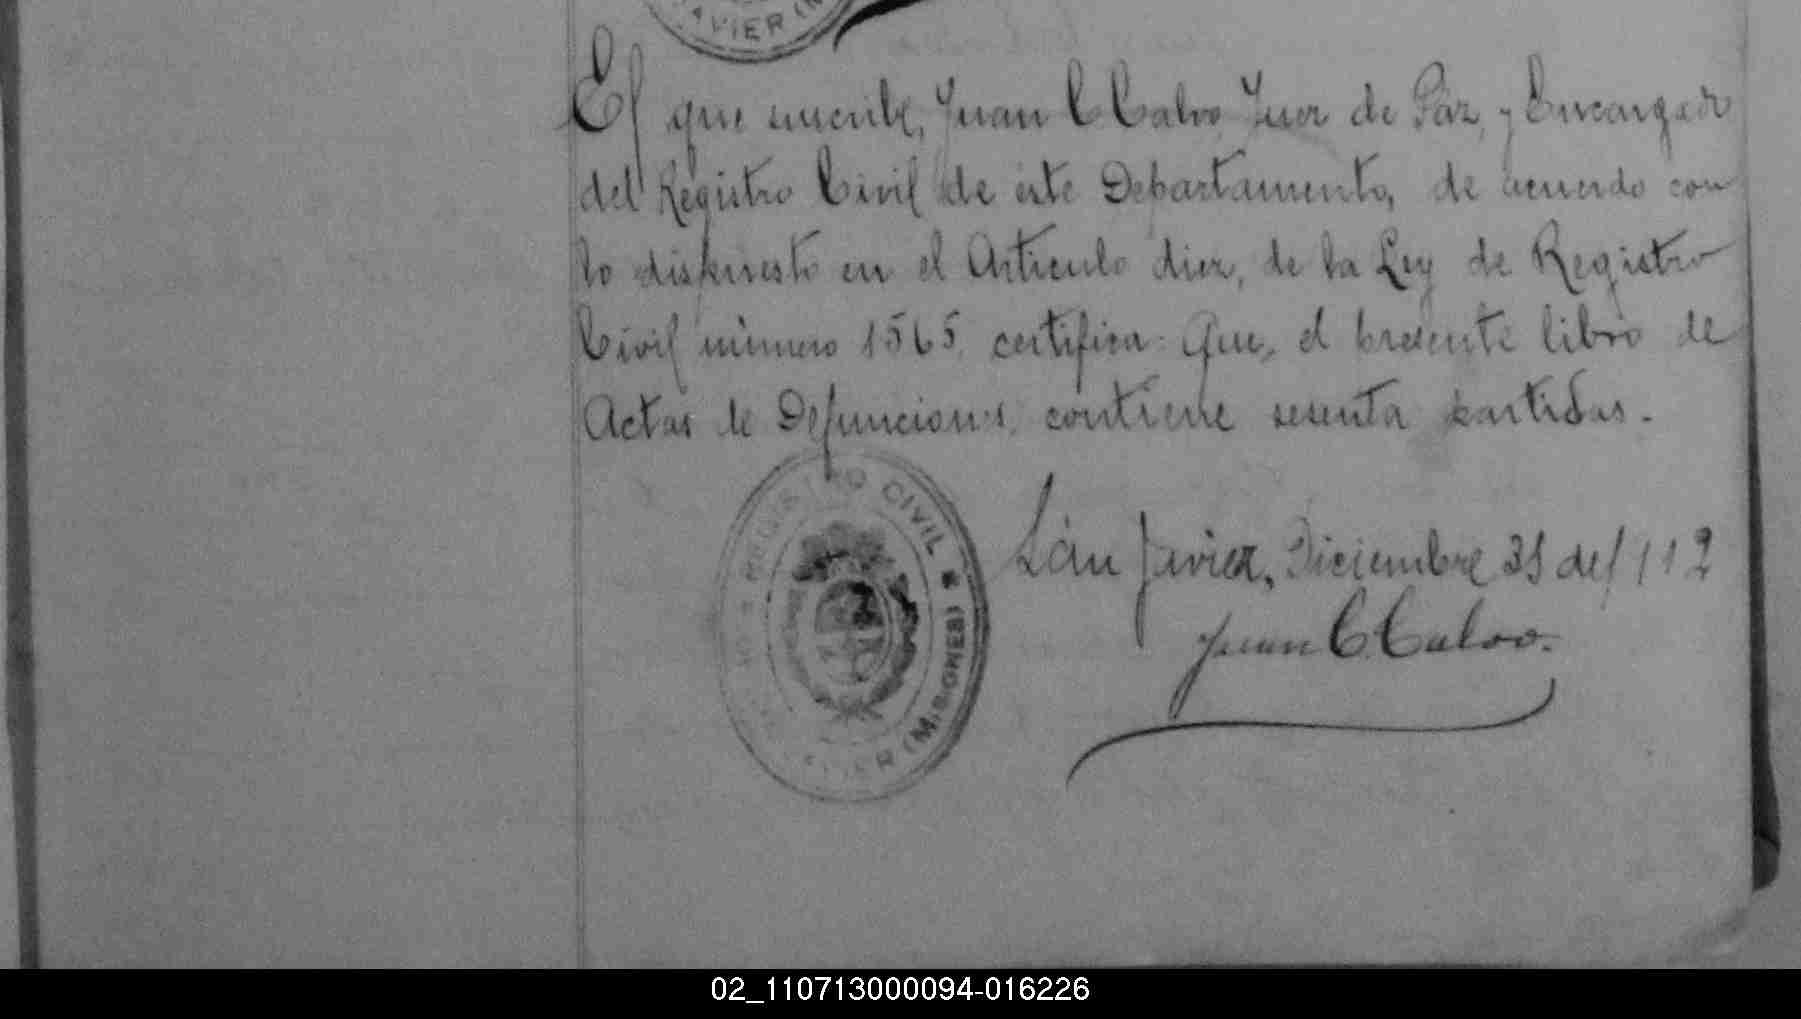 AVIER (M
El que suscribe, Juan C Calvo Juez de Páz, y Encargado
del Registro Civil de éste Departamento, de acuerdo con
lo dispuesto en el Articulo diez, de la Ley de Registro
Civil número 1565, certifica: Que, el presente libro de
Actas de Defunciones, contiene sesenta partidas.
REGISTRO CIVIL
VIER (MISIONES)
Sán Javier, Diciembre 31 del 112
Juan C. Calvo.
02_110713000094-016226